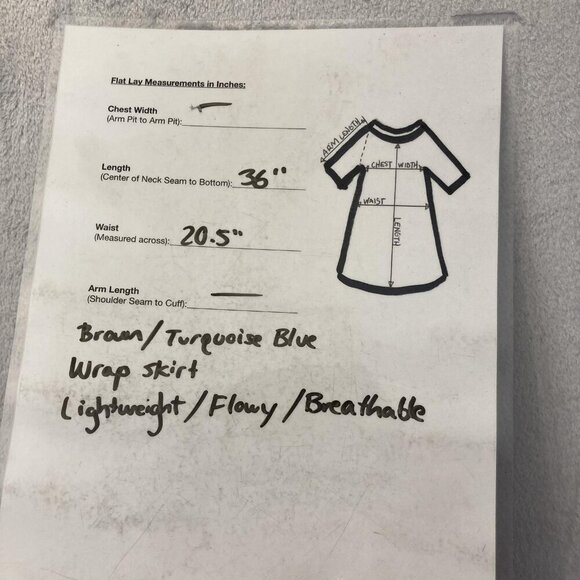 Flat Lay Measurements in Inches:
Chest Width
(Arm Pit to Arm Pit): —
Length
(Center of Neck Seam to Bottom): 36"
Waist
(Measured across): 20.5"
Arm Length
(Shoulder Seam to Cuff): —
ARM LENGTH
CHEST WIDTH
WAIST
LENGTH
Brown/Turquoise Blue
Wrap skirt
Lightweight/Flowy/Breathable